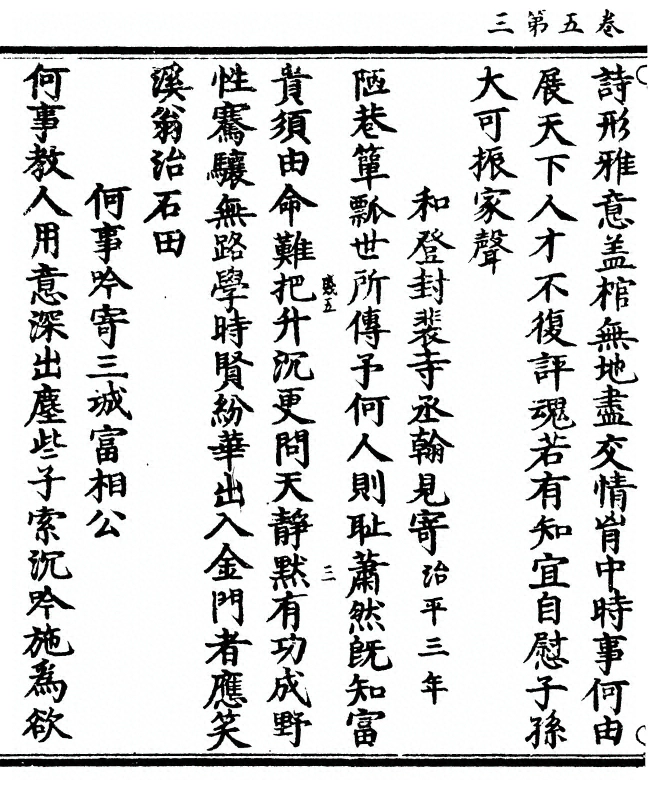 卷五第三
詩形雅意盖棺無地盡交情胷中時事何由
展天下人才不復評魂若有知宜自慰子孫
大可振家聲
和登封裴寺丞翰見寄治平三年
陋巷簞瓢世所傳予何人則恥蕭然旣知富
貴須由命難把升沉更問天靜默有功成野
性騫驤無路學時賢紛華出入金門者應笑
溪翁治石田
何事吟寄三城富相公
何事教人用意深出塵些子索沉吟施爲欲